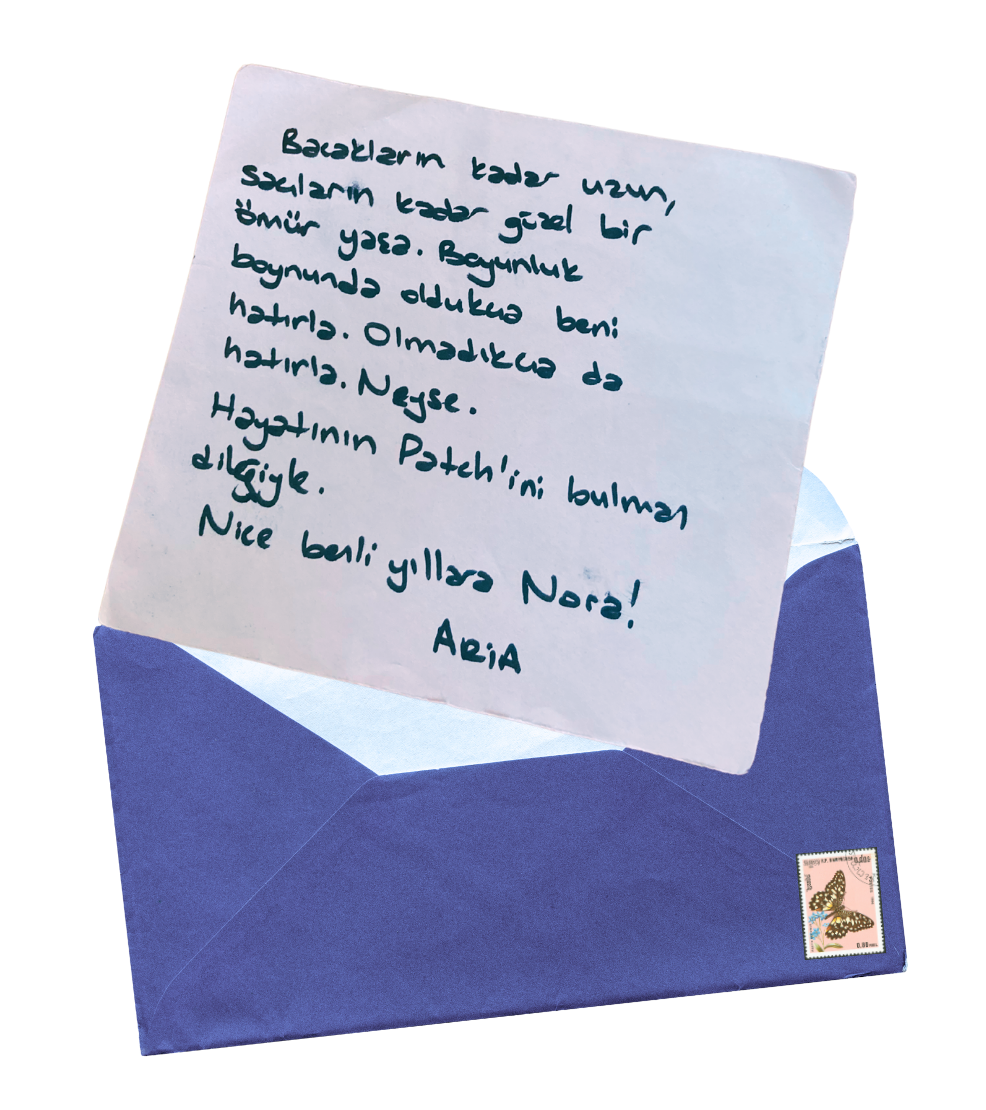 Bacakların kadar uzun,
saçların kadar güzel bir
ömür yaşa. Boyunluk
boynunda oldukça beni
hatırla. Olmadıkça da
hatırla. Neyse.
Hayatının Patch'ini bulman
dileğiyle.
Nice benli yıllara Nora!
ARiA